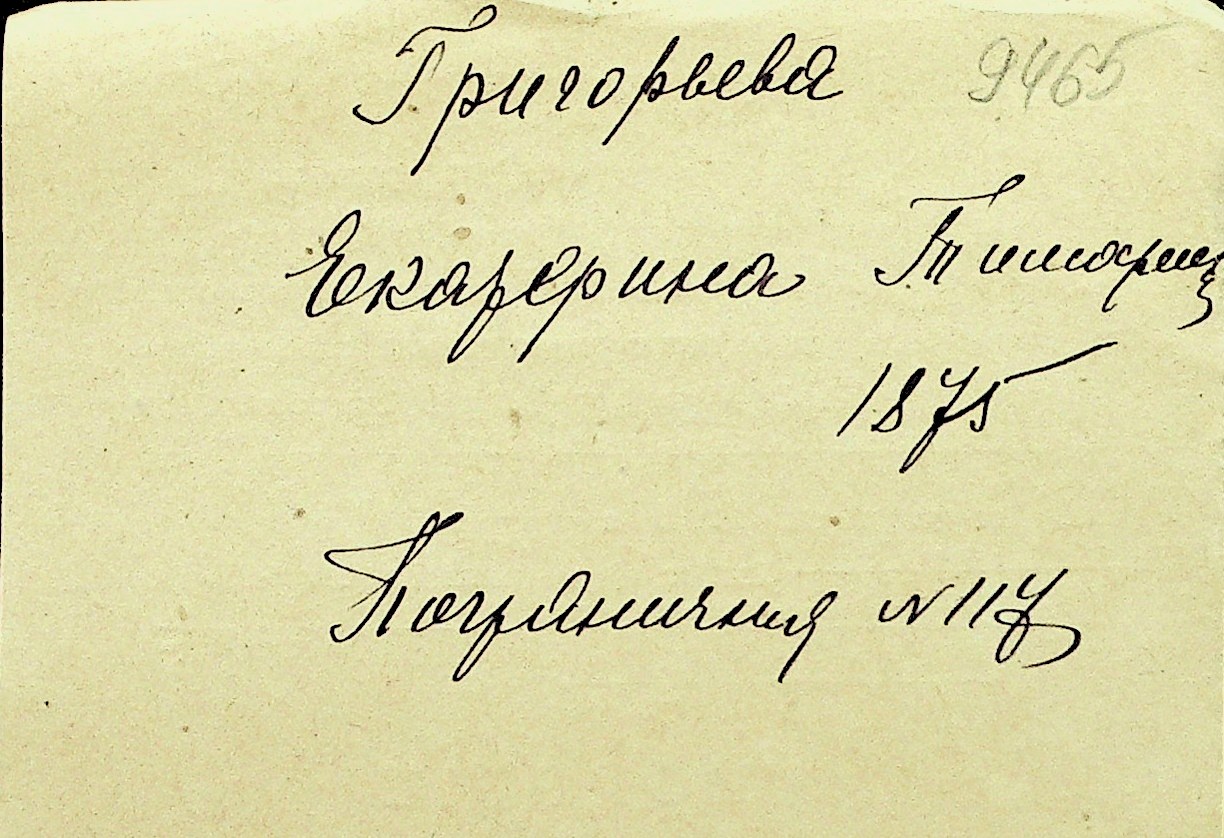 Григорьева 9465
Екатерина
1875
Пограничная N 117